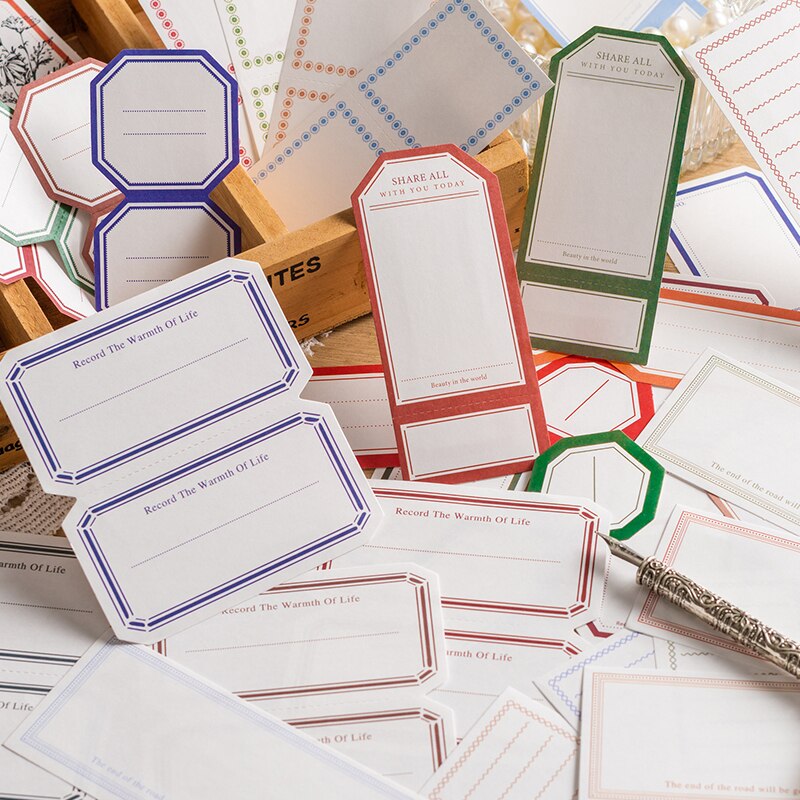 SHARE ALL
WITH YOU TODAY
Beauty in the world
SHARE ALL
WITH YOU TODAY
Beauty in the world
Record The Warmth Of Life
Record The Warmth Of Life
Record The Warmth Of Life
Record The Warmth Of Life
Warmth Of Life
rmth Of Life
rmth Of Life
Of Life
The end of the road will
The end of the road
The end of the road will be